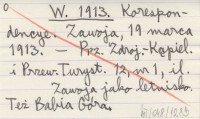 W. 1913. Korespon-
dencye. Zawoja, 19 marca
1913. — Prz. Zdroj.-Kąpiel.
i Przew. Turyst. 12, nr 1, il.
Zawoja jako letnisko.
Też Babia Góra.